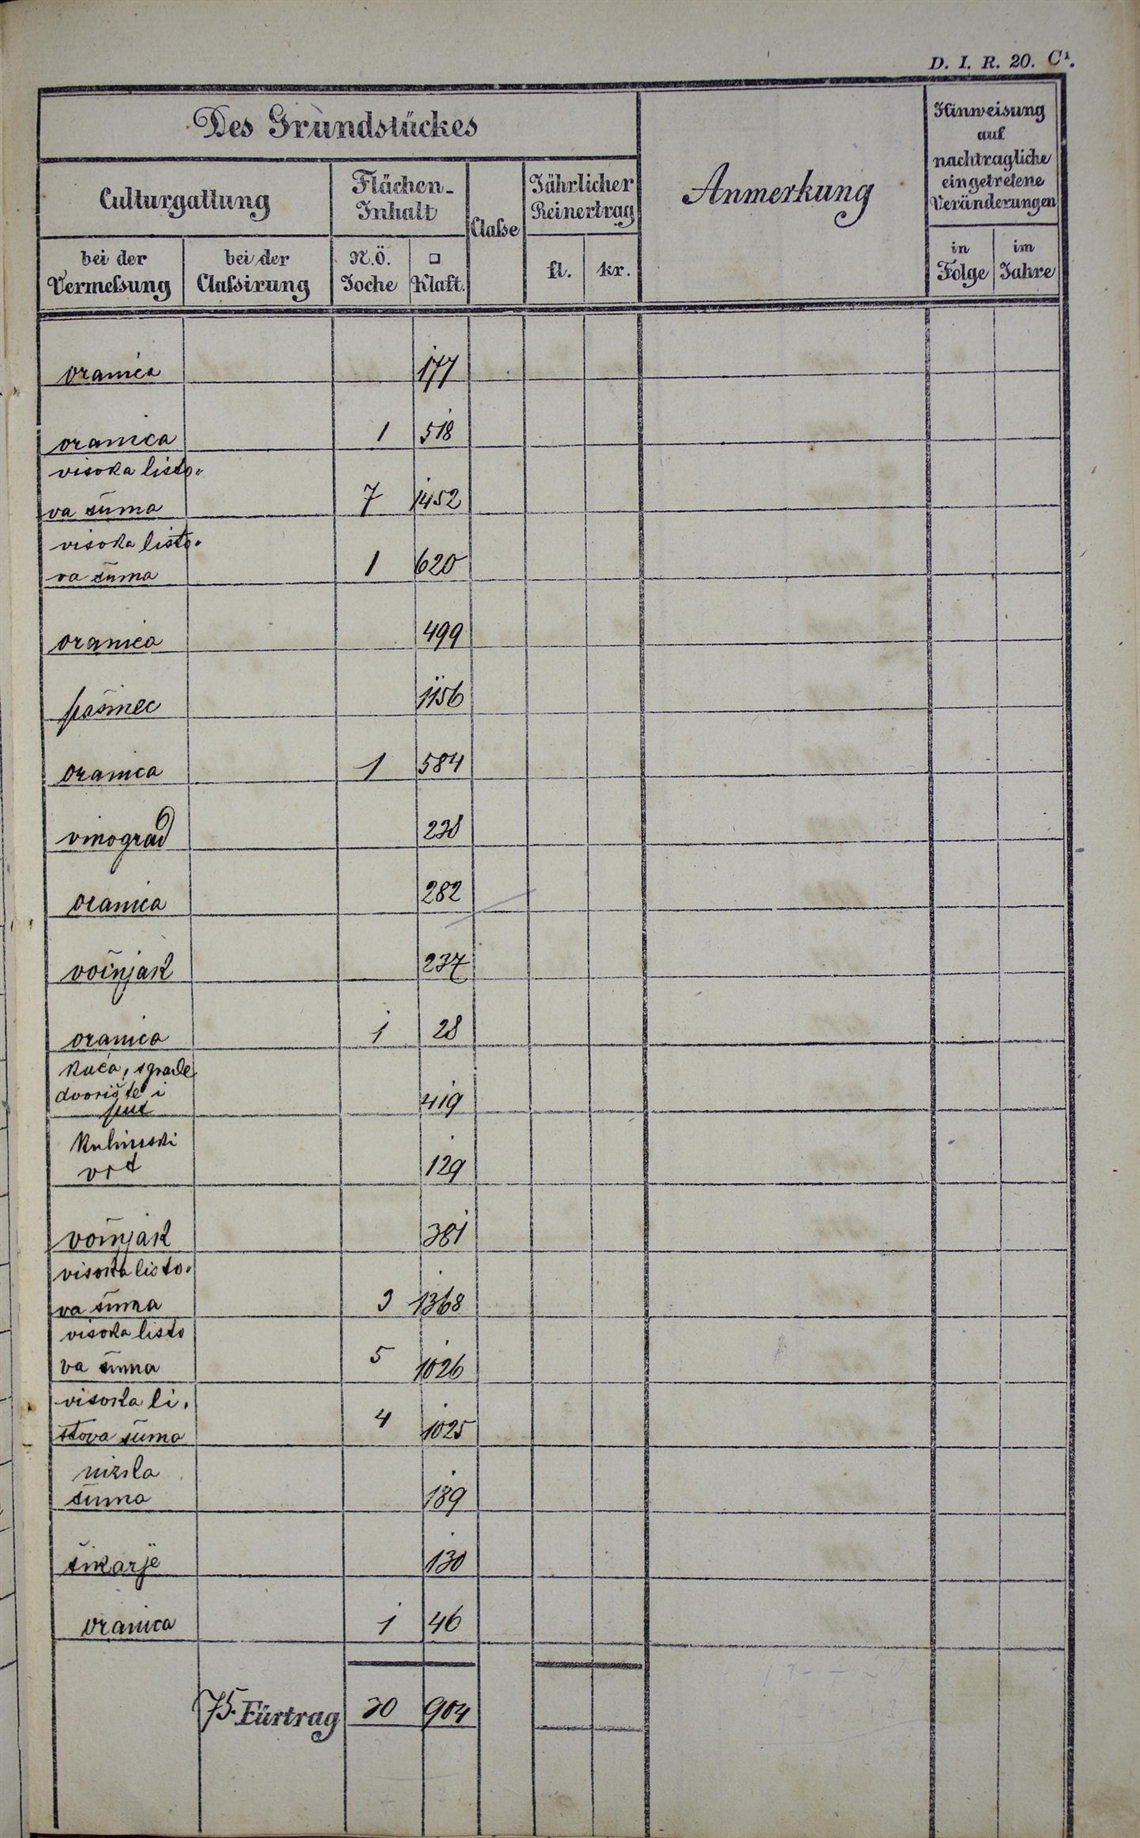 D. I. R. 20. C¹.
Des Grundstückes
Anmerkung
Hinweisung
auf
nachtragliche
eingetretene
Veränderungen
Culturgattung
Flächen-
Inhalt
Claße
Jährlicher
Reinertrag
bei der
Vermeßung
bei der
Claßirung
N.Ö.
Joche
□
Klaft.
fl.
kr.
in
Folge
im
Jahre
oranica 177
oranica 1 518
visoka listo-
va šuma 7 1452
visoka listo-
va šuma 1 620
oranica 499
pašnec 1156
oranica 1 584
vinograd 238
oranica 282
voćnjak 237
oranica 1 28
Kuća, sgrade
dvorište i 419
put
Kuhinski
vrt 129
voćnjak 381
visoka listo-
va šuma 3 1368
visoka listo
va šuma 5 1026
visoka li-
stova šuma 4 1025
nizka
šuma 189
šikarje 130
oranica 1 46
75. Fürtrag 30 904